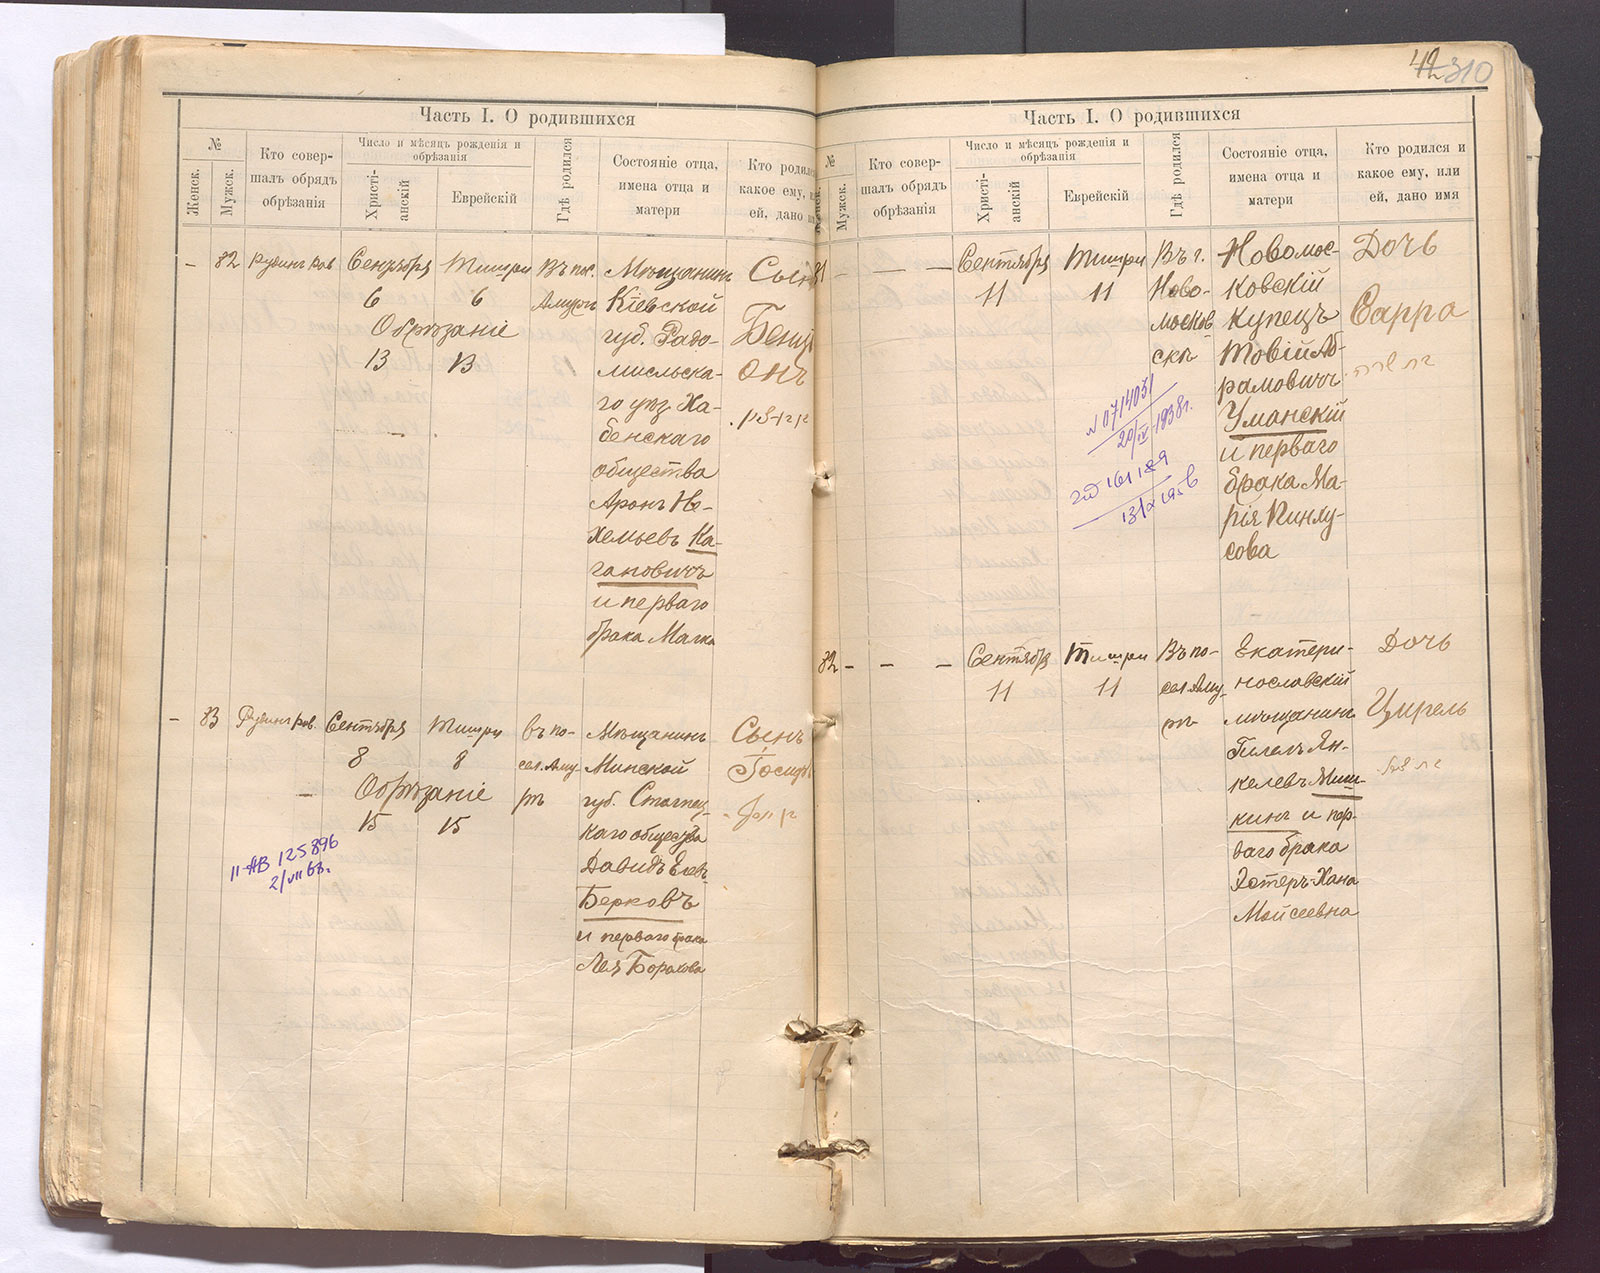 42 310
Часть I. О родившихся
№
Женск.
Мужск.
Кто совер-
шалъ обрядъ
обрѣзанія
Число и мѣсяцъ рожденія и
обрѣзанія
Христі-
анскій
Еврейскій
Гдѣ родился
Состояніе отца,
имена отца и
матери
Кто родился
какое ему,
ей, дано
82
Сентября
6
Тишри
6
Обрѣзаніе
13 13
Въ пос.
Амуръ
Мѣщанинъ
Кіевской
губ. Радо-
мысльска-
го уѣз. Ха-
бенскаго
общества
Аронъ Не-
хемьевъ Ка-
гановичъ
и перваго
брака Малка
Сынъ
Бенці
онъ
83
Рувинъ Ров.
Сентября
8
Тишри
8
Обрѣзаніе
15 15
въ по-
сел. Аму-
ръ
Мѣщанинъ
Минской
губ.
каго общества
Давидъ
Берковъ
и перваго брака
Лея Борахова
Сынъ
Іосифъ
II-АВ 125896
2/VII
Часть I. О родившихся
№
Женск.
Мужск.
Кто совер-
шалъ обрядъ
обрѣзанія
Число и мѣсяцъ рожденія и
обрѣзанія
Христі-
анскій
Еврейскій
Гдѣ родился
Состояніе отца,
имена отца и
матери
Кто родился и
какое ему, или
ей, дано имя
81
Сентября
11
Тишри
11
Въ г.
Ново-
москов
скѣ
Новомос-
ковскій
купецъ
Товій Аб-
рамовичъ
Уманскій
и перваго
брака Ма-
рія Пинху-
сова
Дочь
Сарра
שרה
№ 0714031
20/IV-1938г.
82
Сентября
11
Тишри
11
Въ по-
сел. Аму-
ръ
Екатери-
нославскій
мѣщанинъ
Гилелъ Ян-
келевъ Миш-
кинъ и пер-
ваго брака
Эстеръ-Хана
Мойсеевна
Дочь
Цирель